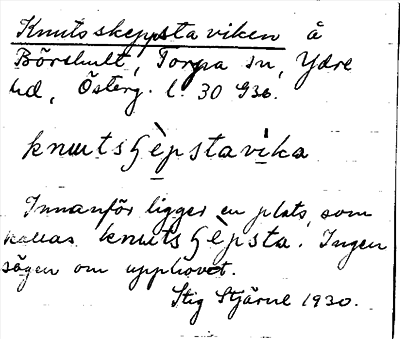 Knutsskeppstaviken å
Börshult, Torpa sn, Ydre
hd, Österg. l. 30 936.
knɯtsʃèpstavika
Innanför ligger en plats, som
kallas knɯtsʃèpsta. Ingen
sägen om upphovet.
Stig Stjärne 1930.